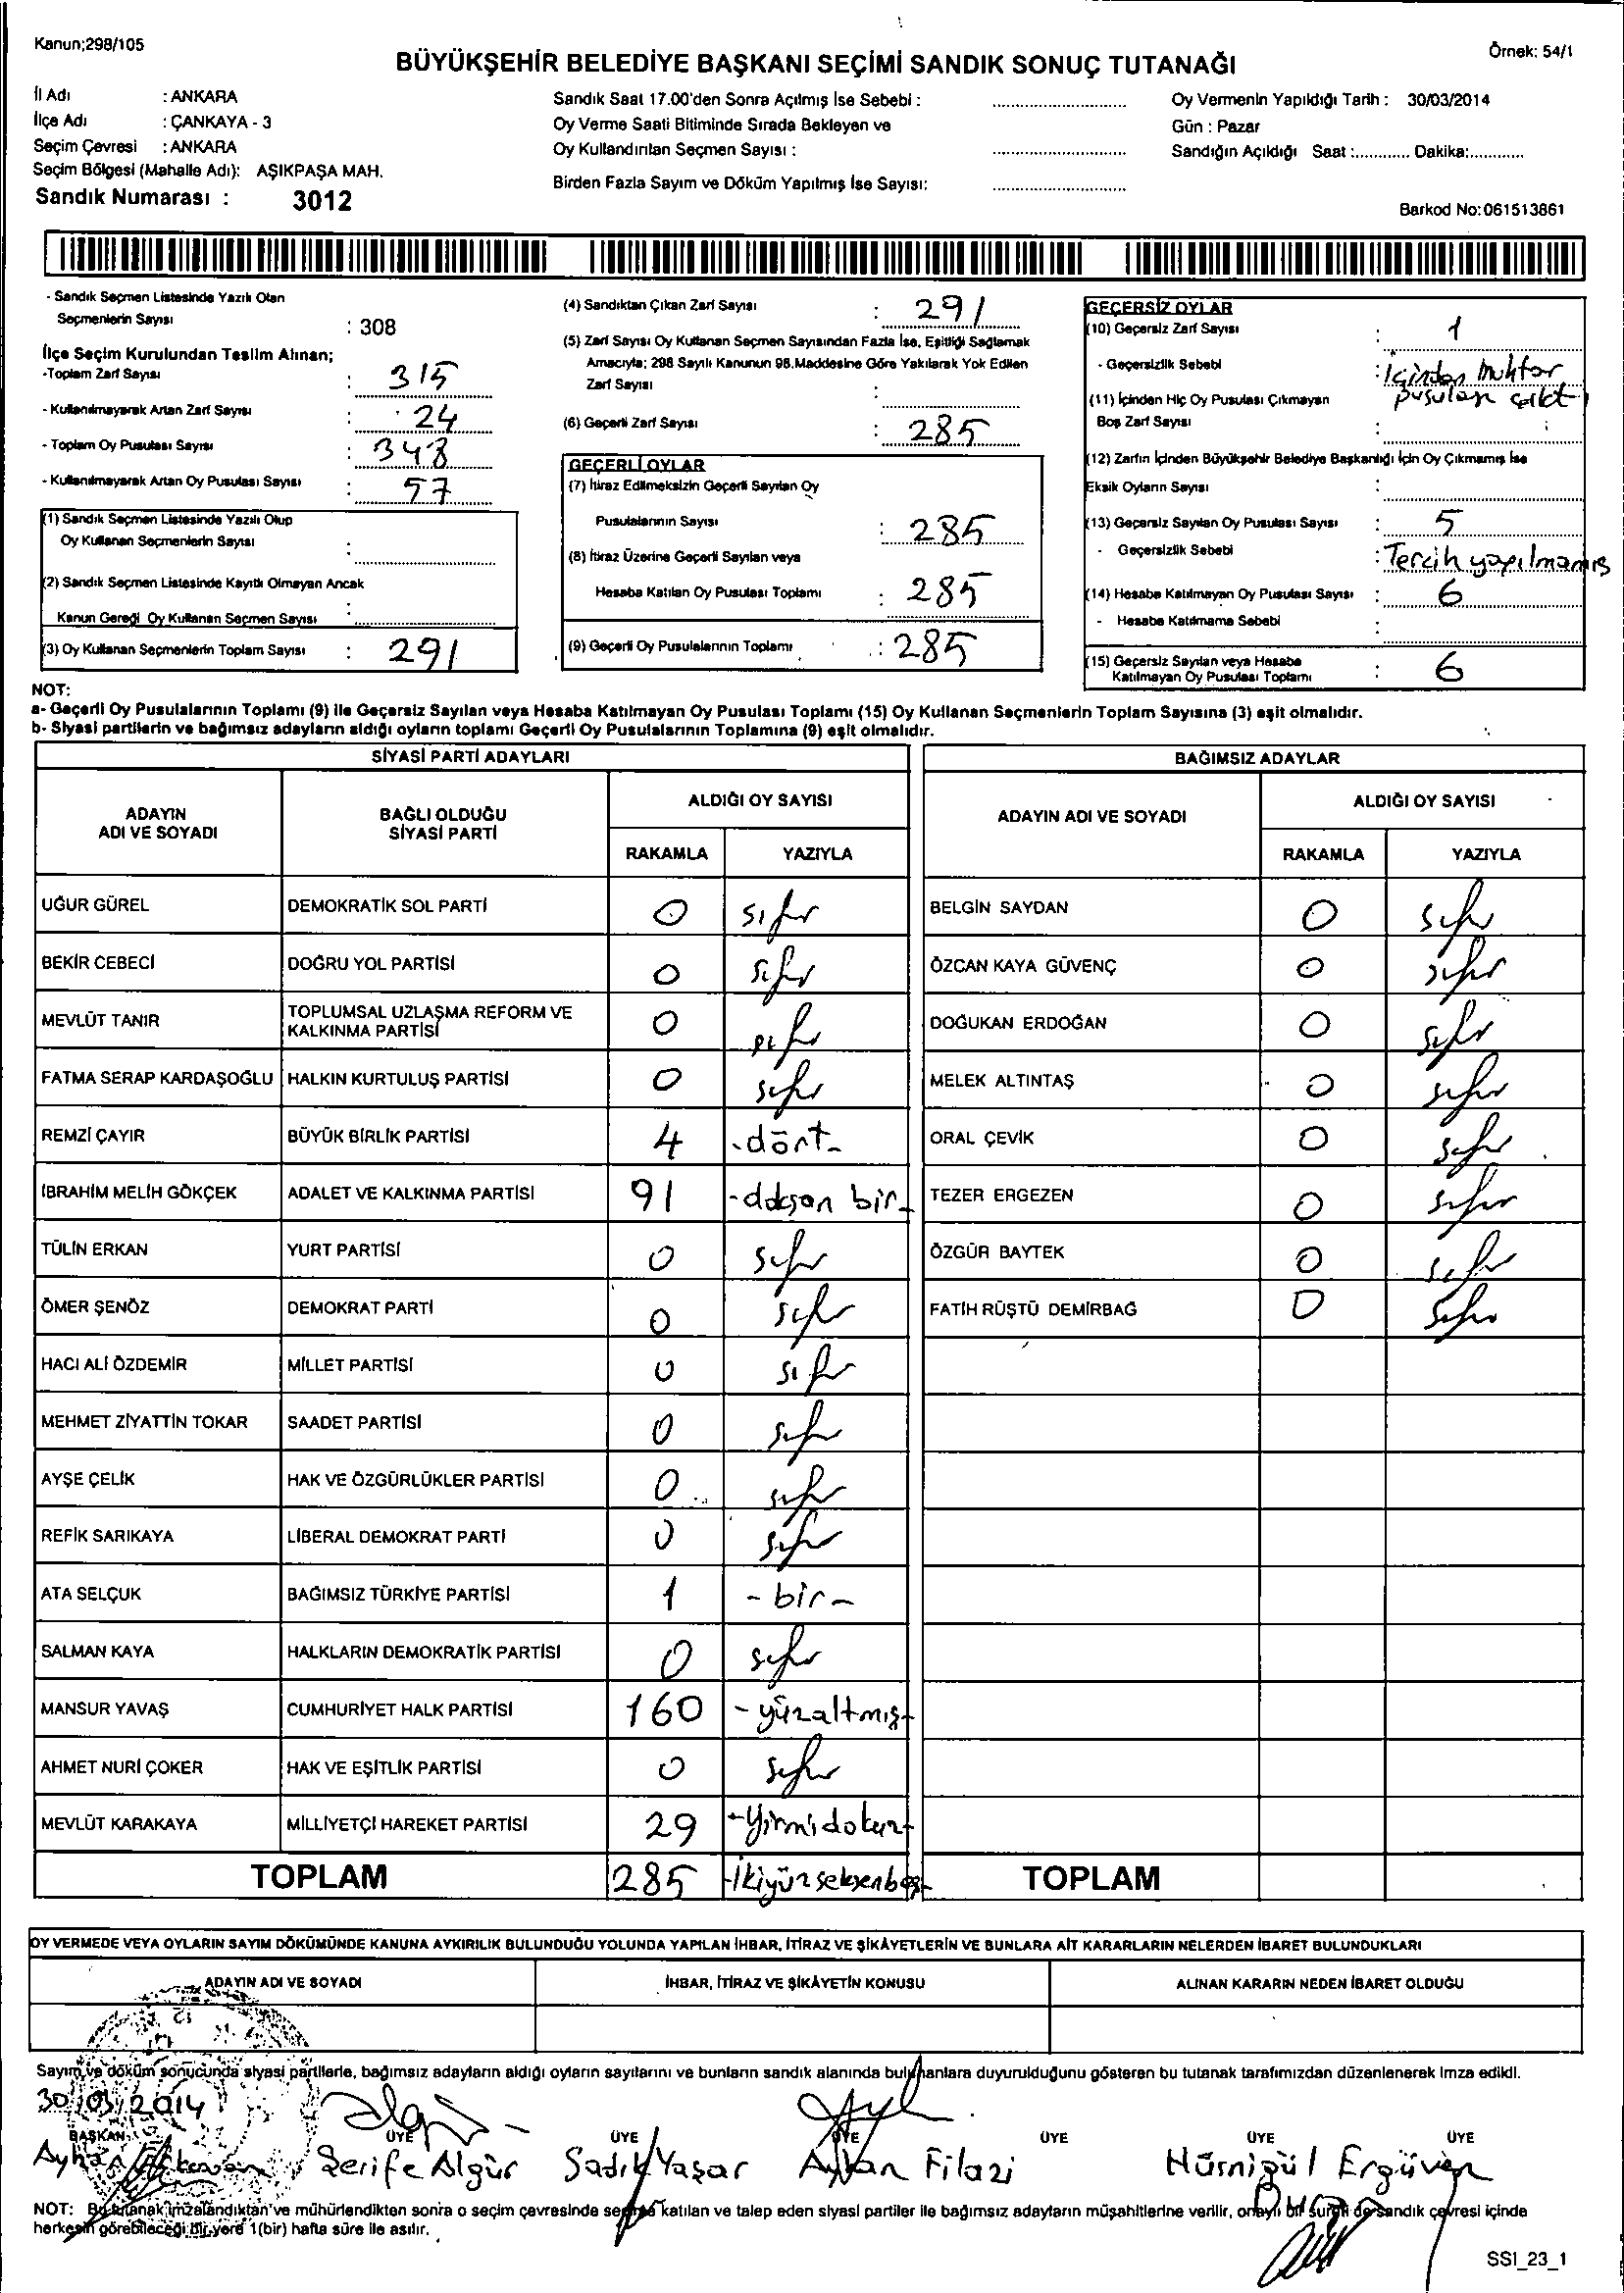 Kanun;298/105
Örnek: 54/1
BÜYÜKŞEHİR BELEDİYE BAŞKANI SEÇİMİ SANDIK SONUÇ TUTANAĞI
İl Adı : ANKARA
İlçe Adı : ÇANKAYA - 3
Seçim Çevresi : ANKARA
Seçim Bölgesi (Mahalle Adı): AŞIKPAŞA MAH.
Sandık Numarası : 3012
Sandık Saat 17.00'den Sonra Açılmış İse Sebebi :
Oy Verme Saati Bitiminde Sırada Bekleyen ve
Oy Kullandırılan Seçmen Sayısı :
Birden Fazla Sayım ve Döküm Yapılmış İse Sayısı:
Oy Vermenin Yapıldığı Tarih : 30/03/2014
Gün : Pazar
Sandığın Açıldığı Saat :............ Dakika:............
Barkod No:061513861
- Sandık Seçmen Listesinde Yazılı Olan
Seçmenlerin Sayısı : 308
İlçe Seçim Kurulundan Teslim Alınan;
-Toplam Zarf Sayısı : 315
- Kullanılmayarak Artan Zarf Sayısı : 24
- Toplam Oy Pusulası Sayısı : 348
- Kullanılmayarak Artan Oy Pusulası Sayısı : 57
(1) Sandık Seçmen Listesinde Yazılı Olup
Oy Kullanan Seçmenlerin Sayısı :
(2) Sandık Seçmen Listesinde Kayıtlı Olmayan Ancak
Kanun Gereği Oy Kullanan Seçmen Sayısı :
(3) Oy Kullanan Seçmenlerin Toplam Sayısı : 291
(4) Sandıktan Çıkan Zarf Sayısı : 291
(5) Zarf Sayısı Oy Kullanan Seçmen Sayısından Fazla İse, Eşitliği Sağlamak
Amacıyla; 298 Sayılı Kanunun 98.Maddesine Göre Yakılarak Yok Edilen
Zarf Sayısı :
(6) Geçerli Zarf Sayısı : 285
GEÇERLİ OYLAR
(7) İtiraz Edilmeksizin Geçerli Sayılan Oy
Pusulalarının Sayısı : 285
(8) İtiraz Üzerine Geçerli Sayılan veya
Hesaba Katılan Oy Pusulası Toplamı : 285
(9) Geçerli Oy Pusulalarının Toplamı : 285
GEÇERSİZ OYLAR
(10) Geçersiz Zarf Sayısı : 1
- Geçersizlik Sebebi : İçinden muhtar
pusulası çıktı
(11) İçinden Hiç Oy Pusulası Çıkmayan
Boş Zarf Sayısı :
(12) Zarfın İçinden Büyükşehir Belediye Başkanlığı İçin Oy Çıkmamış İse
Eksik Oyların Sayısı :
(13) Geçersiz Sayılan Oy Pusulası Sayısı : 5
- Geçersizlik Sebebi : Tercih yapılmamış
(14) Hesaba Katılmayan Oy Pusulası Sayısı : 6
- Hesaba Katılmama Sebebi :
(15) Geçersiz Sayılan veya Hesaba
Katılmayan Oy Pusulası Toplamı : 6
NOT:
a- Geçerli Oy Pusulalarının Toplamı (9) ile Geçersiz Sayılan veya Hesaba Katılmayan Oy Pusulası Toplamı (15) Oy Kullanan Seçmenlerin Toplam Sayısına (3) eşit olmalıdır.
b- Siyasi partilerin ve bağımsız adayların aldığı oyların toplamı Geçerli Oy Pusulalarının Toplamına (9) eşit olmalıdır.
SİYASİ PARTİ ADAYLARI
ADAYIN ADI VE SOYADI
BAĞLI OLDUĞU SİYASİ PARTİ
ALDIĞI OY SAYISI
RAKAMLA YAZIYLA
UĞUR GÜREL DEMOKRATİK SOL PARTİ 0 sıfır
BEKİR CEBECİ DOĞRU YOL PARTİSİ 0 sıfır
MEVLÜT TANIR TOPLUMSAL UZLAŞMA REFORM VE KALKINMA PARTİSİ 0 sıfır
FATMA SERAP KARDAŞOĞLU HALKIN KURTULUŞ PARTİSİ 0 sıfır
REMZİ ÇAYIR BÜYÜK BİRLİK PARTİSİ 4 -dört-
İBRAHİM MELİH GÖKÇEK ADALET VE KALKINMA PARTİSİ 91 -doksan bir-
TÜLİN ERKAN YURT PARTİSİ 0 sıfır
ÖMER ŞENÖZ DEMOKRAT PARTİ 0 sıfır
HACI ALİ ÖZDEMİR MİLLET PARTİSİ 0 sıfır
MEHMET ZİYATTİN TOKAR SAADET PARTİSİ 0 sıfır
AYŞE ÇELİK HAK VE ÖZGÜRLÜKLER PARTİSİ 0 sıfır
REFİK SARIKAYA LİBERAL DEMOKRAT PARTİ 0 sıfır
ATA SELÇUK BAĞIMSIZ TÜRKİYE PARTİSİ 1 -bir-
SALMAN KAYA HALKLARIN DEMOKRATİK PARTİSİ 0 sıfır
MANSUR YAVAŞ CUMHURİYET HALK PARTİSİ 160 -yüzaltmış-
AHMET NURİ ÇOKER HAK VE EŞİTLİK PARTİSİ 0 sıfır
MEVLÜT KARAKAYA MİLLİYETÇİ HAREKET PARTİSİ 29 -Yirmidokuz-
TOPLAM 285 -İkiyüzseksenbeş-
BAĞIMSIZ ADAYLAR
ADAYIN ADI VE SOYADI
ALDIĞI OY SAYISI
RAKAMLA YAZIYLA
BELGİN SAYDAN 0 sıfır
ÖZCAN KAYA GÜVENÇ 0 sıfır
DOĞUKAN ERDOĞAN 0 sıfır
MELEK ALTINTAŞ 0 sıfır
ORAL ÇEVİK 0 sıfır
TEZER ERGEZEN 0 sıfır
ÖZGÜR BAYTEK 0 sıfır
FATİH RÜŞTÜ DEMİRBAĞ 0 sıfır
TOPLAM
OY VERMEDE VEYA OYLARIN SAYIM DÖKÜMÜNDE KANUNA AYKIRILIK BULUNDUĞU YOLUNDA YAPILAN İHBAR, İTİRAZ VE ŞİKÂYETLERİN VE BUNLARA AİT KARARLARIN NELERDEN İBARET BULUNDUKLARI
ADAYIN ADI VE SOYADI
İHBAR, İTİRAZ VE ŞİKÂYETİN KONUSU
ALINAN KARARIN NEDEN İBARET OLDUĞU
Sayım ve döküm sonucunda siyasi partilerle, bağımsız adayların aldığı oyların sayılarını ve bunların sandık alanında bulunanlara duyurulduğunu gösteren bu tutanak tarafımızdan düzenlenerek imza edildi.
30/03/2014
BAŞKAN ÜYE ÜYE ÜYE ÜYE ÜYE ÜYE
Ayhan Şerife Algür Sadık Yaşar Ayhan Filazi Hüsnigül Ergüven
NOT: Bu tutanak imzalandıktan ve mühürlendikten sonra o seçim çevresinde seçime katılan ve talep eden siyasi partiler ile bağımsız adayların müşahitlerine verilir, onaylı bir sureti de sandık çevresi içinde
herkesin görebileceği bir yere 1(bir) hafta süre ile asılır.
SS1_23_1